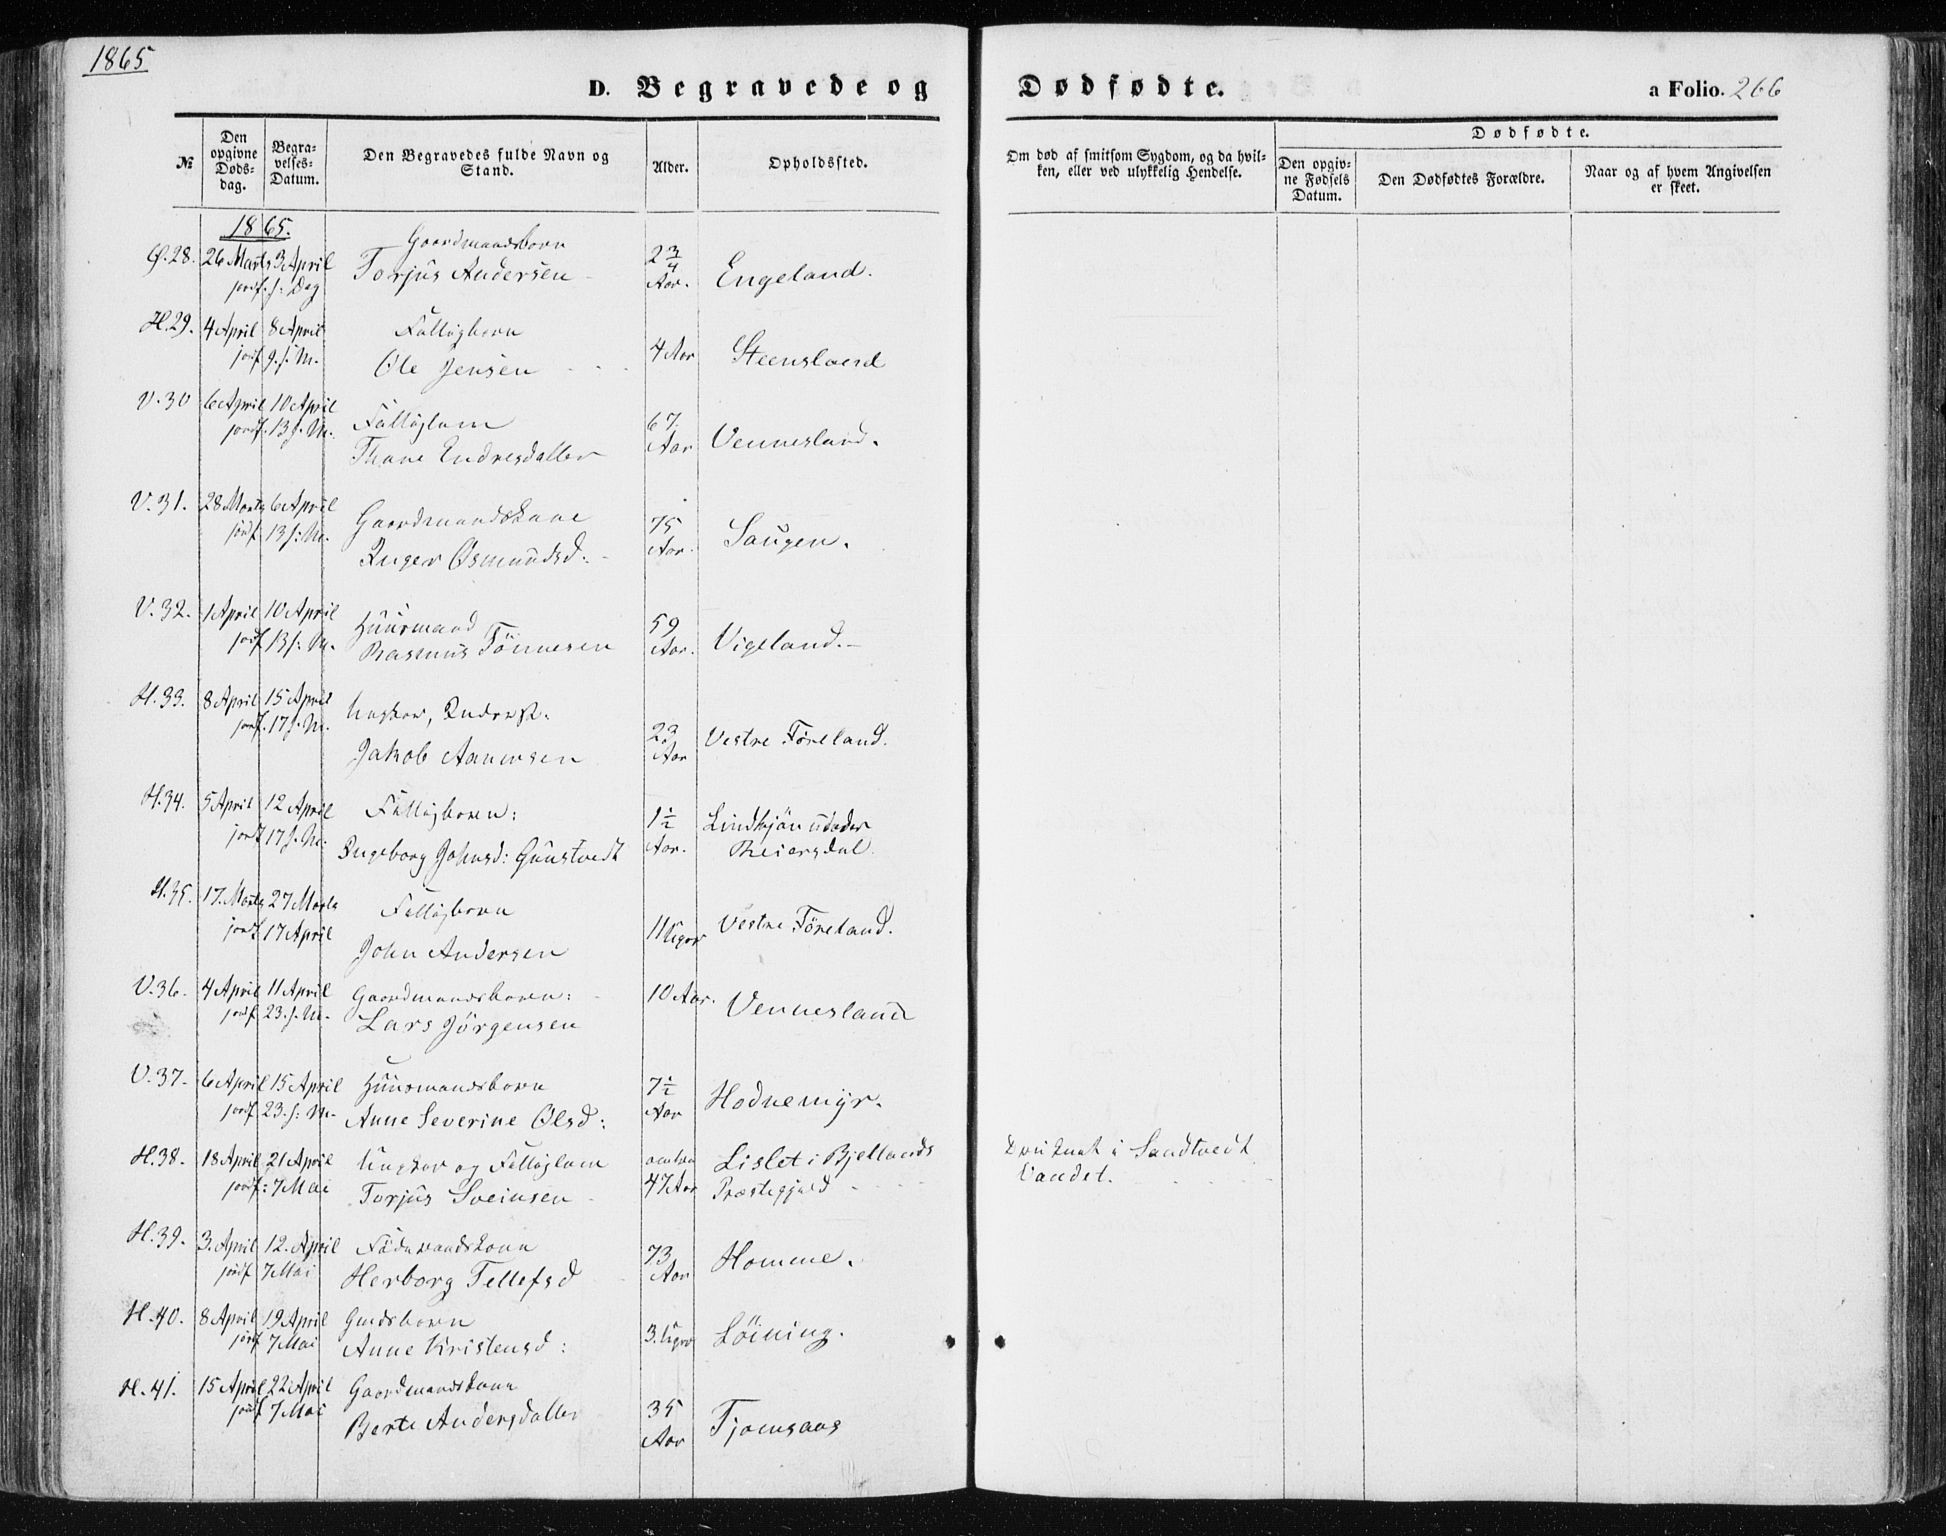 1865
D. Begravede og Dødfødte. a Folio. 266
№
Den opgivne Døds-dag.
Begra-velses-Datum.
Den Begravedes fulde Navn og Stand.
Alder.
Opholdssted.
Om død af smitsom Sygdom, og da hvil-ken, eller ved ulykkelig Hendelse.
Dødfødte.
Den opgiv-ne Fødsels Datum.
Den Dødfødtes Forældre.
Naar og af hvem Angivelsen er skeet.
1865.
Gaardmandsbarn
Ø.28. 26 Marts 3 April Torjus Andersen 2 3/4 Aar. Engeland.
jordf. s. Dag
H.29. 4 April 8 April Fattigbarn
jordf. 9. s. M. Ole Jensen 4 Aar Steensland
V.30 6 April 10 April Fattiglem 67. Aar Vennesland.
jordf. 13 s. M. Thone Endresdatter
V.31. 28 Marts 6 April Gaardmandskone 75 Aar. Saugen.
jordf. 13 s: M. Inger Osmundsd:
V.32. 1 April 10 April Huusmand 59 Aar. Vigeland.
jordf. 13 s: M. Rasmus Tönnesen
H.33. 8 April 15 April Ungkar, Inderst.
jordf. 17 s. M. Jakob Aanensen 23 Aar Vestre Föreland.
H.34. 5 April 12 April Fattigbarn: 1 1/2 Aar. Lindkjön under
jordf. 17 s. M. Ingeborg Johnsd: Gunstvedt Reiersdal.
H.35. 17. Marts 27 Marts Fattigbarn
jordf. 17 April John Andersen 11 Uger Vestre Föreland.
V.36. 4 April 11 April Gaardmandsbarn: 10 Aar. Vennesland
jordf. 23. s. M. Lars Jörgensen
V.37. 6 April 15 April Huusmandsbarn 7 1/2 Aar Hodnemyr.
jordf. 23. s: M. Anne Severine Olsd:
H.38. 18 April 21 April Ungkar og Fattiglem omtr. Lislet i Bjellands Druknet i Sandtvedt
jordf: 7 Mai Torjus Sveinsen 47 Aar Præstegjeld Vandet.
H.39. 3. April 12. April Föderaadskone 73 Aar Homme.
jordf 7 Mai Herborg Tellefsd
H.40. 8 April 19 April
jordf 7 Mai Anne Kristensd: 3. Uger Löining.
H.41. 15 April 22 April Gaardmandskone
jordf 7 Mai Berte Andersdatter 35 Aar Fjomsaas